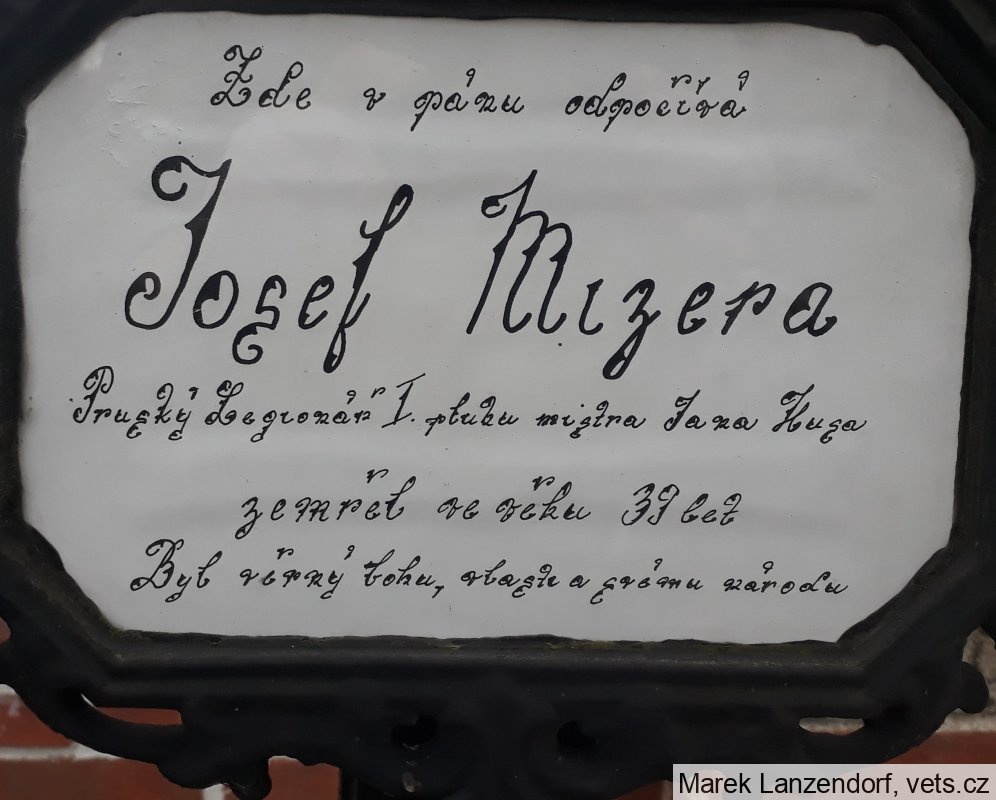 Zde v pánu odpočívá
Josef Mizera
Pruský Legionář I. pluku mistra Jana Husa
zemřel ve věku 39 let
Byl věrný bohu, vlasti a svému národu
Marek Lanzendorf, vets.cz